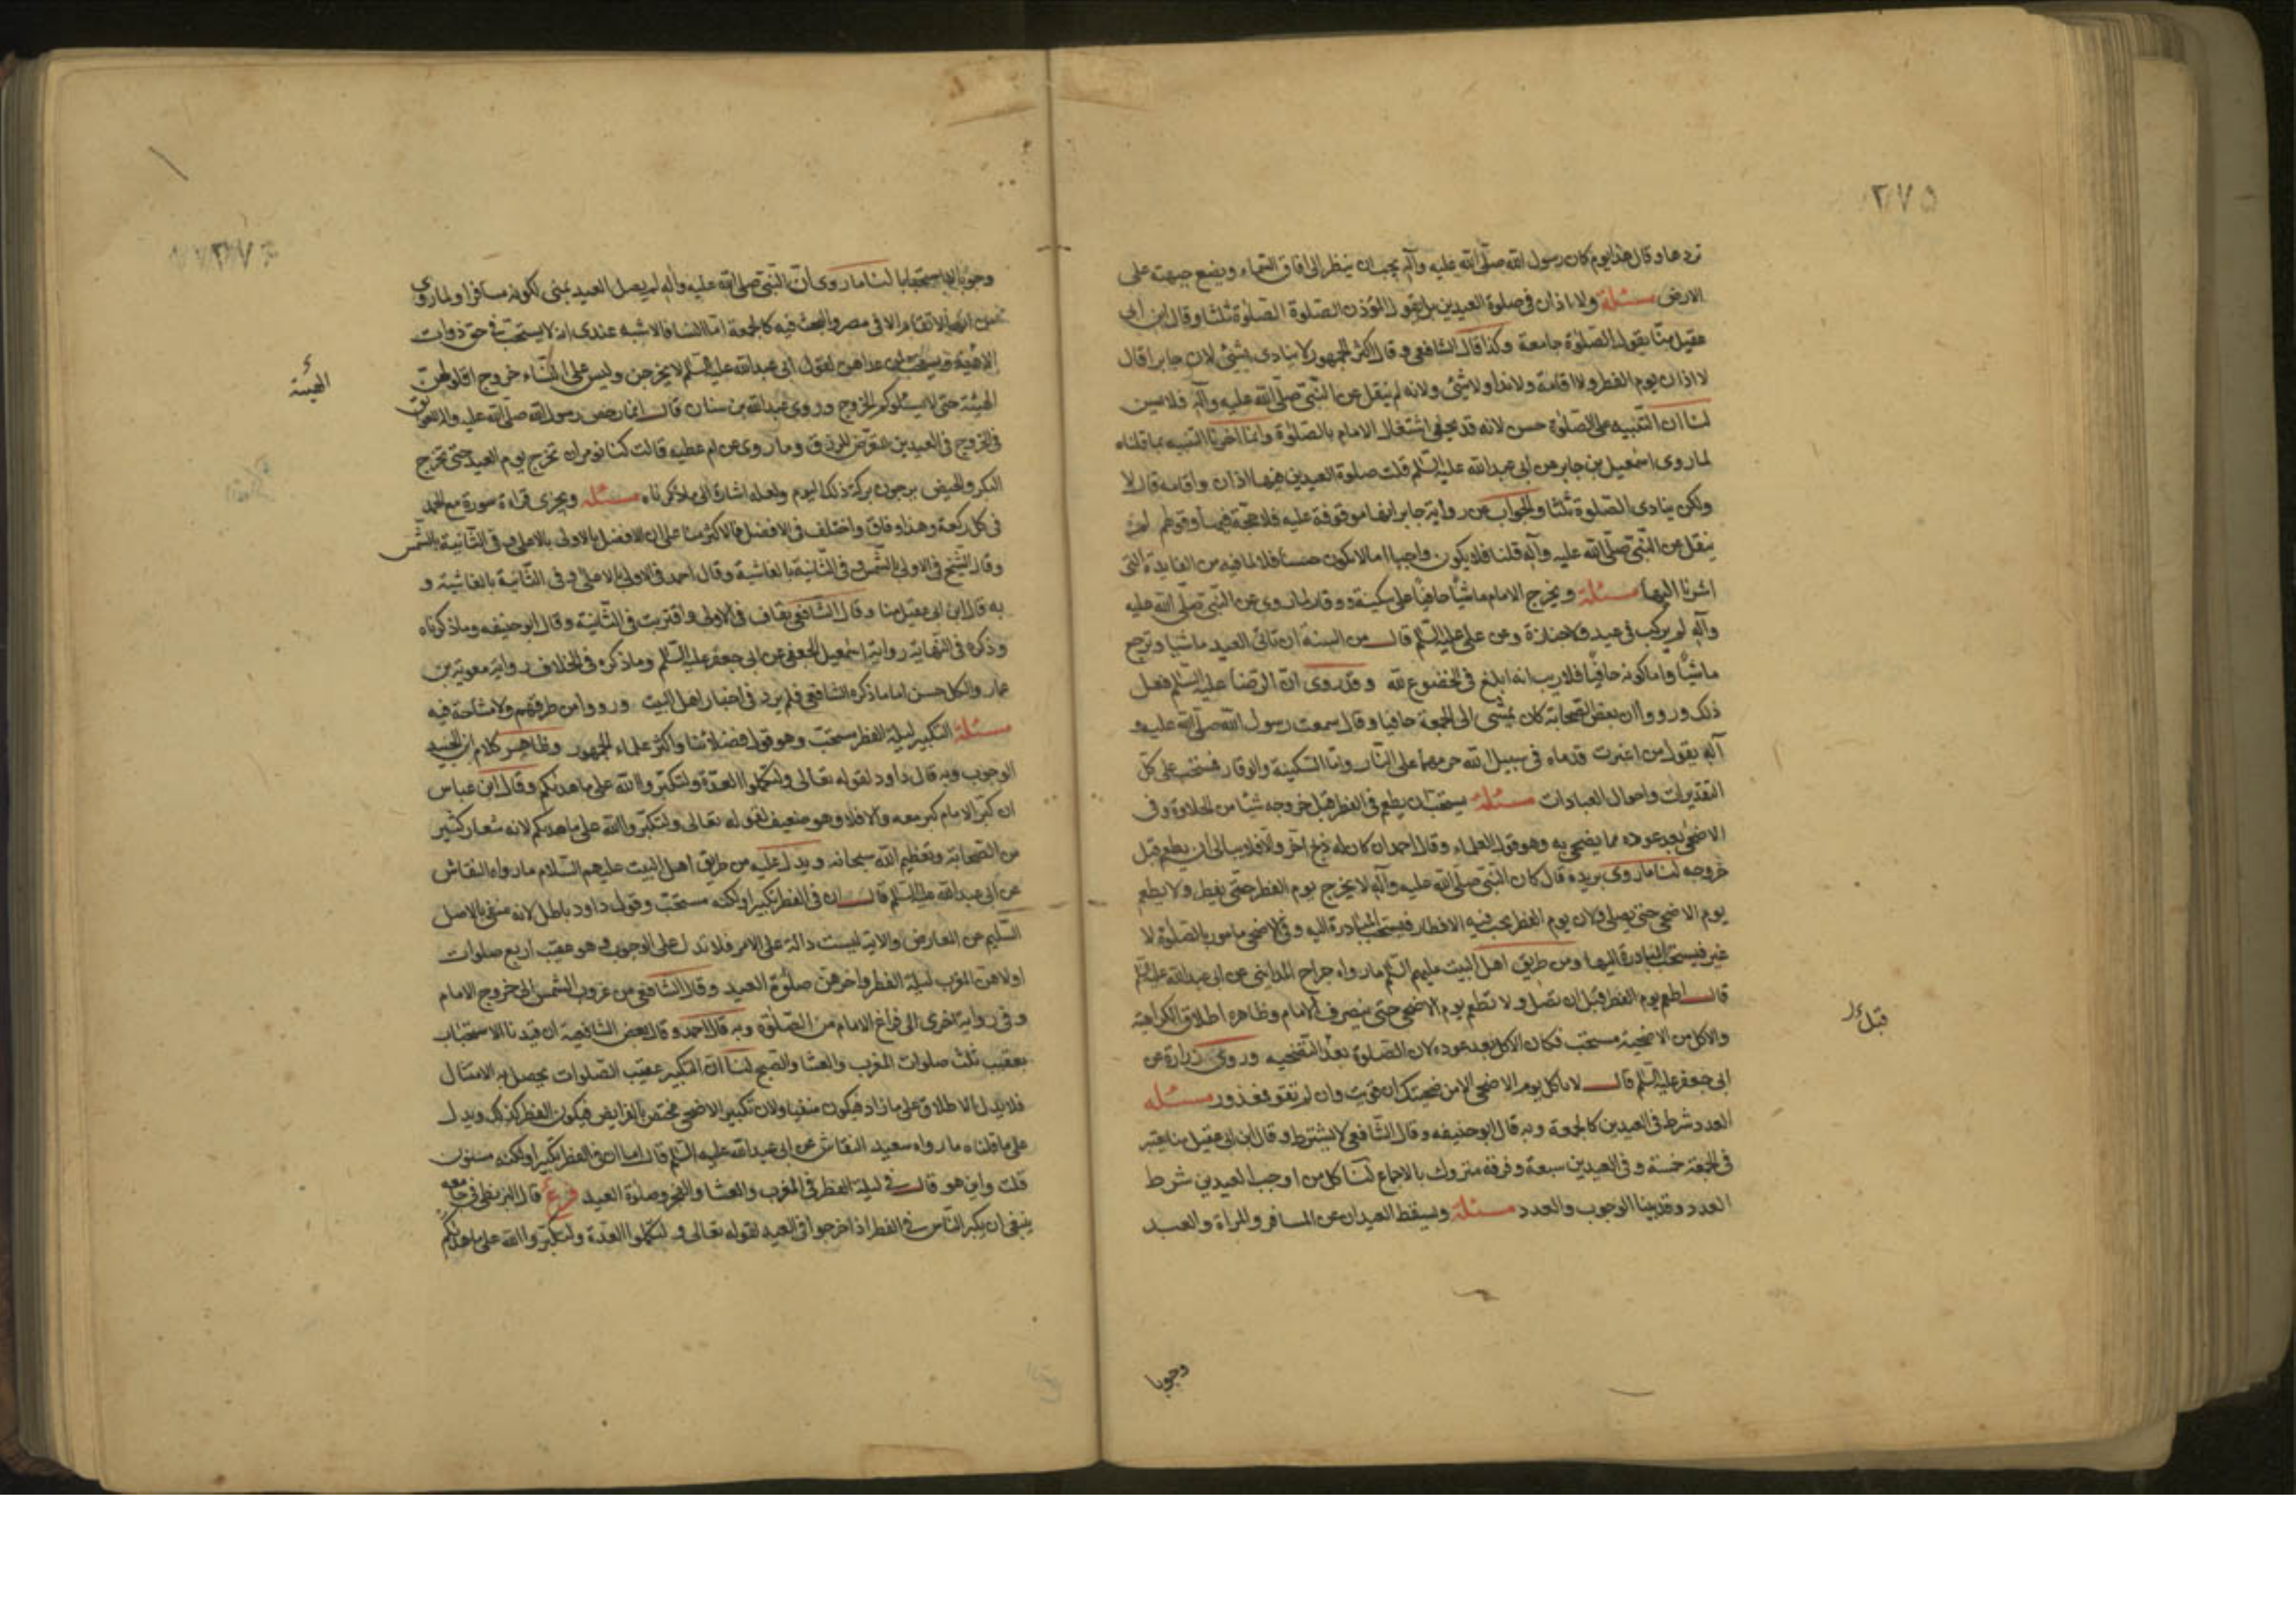 ٢٧٥
تردها وقال هذا يوم كان رسول الله صلى الله عليه وآله يحب ان ينظر الى آفاق السماء ويضع جبهته على
الارض مسئلة ولا اذان فى صلوة العيدين بل يقول المؤذن الصلوة الصلوة ثلثا وقال ابن ابى
عقيل منا يقول الصلوة جامعة وكذا قال الشافعى وقال اكثر الجمهور لا ينادى بشئ لان جابرا قال
لا اذان يوم الفطر ولا اقامة ولا نداء ولا شئ ولانه لم ينقل عن النبى صلى الله عليه وآله فلا يسن
لنا ان التنبيه على الصلوة حسن لانه قد يخفى اشتغال الامام بالصلوة وانما اخرنا التنبيه بما قلناه
لما روى اسمعيل بن جابر عن ابى عبدالله عليه السلم قلت صلوة العيدين فيهما اذان واقامة قال لا
ولكن ينادى الصلوة ثلثا والجواب عن رواية جابر انها موقوفة عليه فلا حجة فيها وقولهم لم
ينقل عن النبى صلى الله عليه وآله قلنا فلا يكون واجبا اما لا يكون حسنا فلا لما فيه من الفايدة التى
اشرنا اليها مسئلة ويخرج الامام ماشيا حافيا على سكينة ووقار لما روى عن النبى صلى الله عليه
وآله لم يركب فى عيد ولا جنازة وعن على عليه السلم قال من السنة ان تاتى العيد ماشيا وترجع
ماشيا واما كونه حافيا فلا ريب انه ابلغ فى الخضوع لله وقد روى ان الرضا عليه السلم فعل
ذلك ورووا ان بعض الصحابة كان يمشى الى الجمعة حافيا وقال سمعت رسول الله صلى الله عليه و
آله يقول من اغبرت قدماه فى سبيل الله حرمهما على النار واما السكينة والوقار فمستحب على كل
التقديرات واحوال العبادات مسئلة يستحب ان يطعم فى الفطر قبل خروجه شيئا من الحلاوة وفى
الاضحى بعد عوده مما يضحى به وهو قول العلماء وقال احمد ان كان له ذبح اخر والا فلا يبالى ان يطعم قبل
خروجه لنا ما روى بريدة قال كان النبى صلى الله عليه وآله لا يخرج يوم الفطر حتى يفطر ولا يطعم
يوم الاضحى حتى يصلى ولان يوم الفطر يجب فيه الافطار فيستحب المبادرة اليه وفى الاضحى مامور بالصلوة لا
غير فيستحب المبادرة اليها ومن طريق اهل البيت عليهم السلم ما رواه جراح المداينى عن ابى عبدالله عليه السلم
قال اطعم يوم الفطر قبل ان تصلى ولا تطعم يوم الاضحى حتى ينصرف الامام وظاهره اطلاق الكراهية
والاكل من الاضحية مستحب فكان الاكل بعد عوده لان الصلوة بعد التضحيه وروى زرارة عن
قبل
ابى جعفر عليه السلم قال لا تاكل يوم الاضحى الا من ضحيتك ان قويت وان لم تقو فمعذور مسئله
العدد شرط فى العيدين كالجمعة وبه قال ابو حنيفه وقال الشافعى لا يشترط وقال ابن ابى عقيل منا يعتبر
فى الجمعة خمسة وفى العيدين سبعة وفرقه متروك بالاجماع لنا كل من اوجب العيدين شرط
العدد وقد بينا الوجوب والعدد مسئلة ويسقط العيدان عن المسافر والمراة والعبد
وجوبا
وجوبا لا استحبابا لنا ما روى ان النبى صلى الله عليه وآله لم يصل العيد بمنى لكونه مسافرا ولما روى
انها لا تقام الا فى مصر والبحث فيه كالجمعة اما النساء فالاشبه عندى انه لا يستحب فى حق ذوات
الهيئة ويستحب لمن عداهن لقول ابى عبدالله عليه السلم لا يخرجن وليس على النساء خروج اقلوا لهن
الهيئة
الهيئة حتى لا يسئلوكم الخروج وروى عبدالله بن سنان قال انما رخص رسول الله صلى الله عليه واله للعواتق
فى الخروج فى العيدين للتعرض للرزق وما روى عن ام عطيه قالت كنا نومر ان نخرج يوم العيد حتى تخرج
البكر والحيض يرجون بركة ذلك اليوم ولعله اشارة الى ما ذكرناه مسئله ويجزى قراءة سورة مع الحمد
فى كل ركعة وهذا وفاق واختلف فى الافضل فالاكثر منا على ان الافضل بالاولى بالاعلى وفى الثانية بالشمس
وقال الشيخ فى الاولى بالشمس وفى الثانية بالغاشية وقال احمد فى الاولى بالاعلى وفى الثانية بالغاشية و
به قال ابن ابى عقيل منا وقال الشافعى بقاف فى الاولى واقتربت فى الثانية وقال ابو حنيفه وما ذكرناه
وذكره فى النهاية رواية اسمعيل الجعفى عن ابى جعفر عليه السلم وما ذكره فى الخلاف رواية معوية بن
عمار والكل حسن اما ما ذكره الشافعى فلم يرد فى اخبار اهل البيت ورووا من طرقهم ولا مشاحة فيه
مسئلة التكبير ليلة الفطر مستحب وهو قول فضلائنا واكثر علماء الجمهور وظاهر كلام ابن الجنيد
الوجوب وبه قال داود لقوله تعالى ولتكملوا العدة ولتكبروا الله على ما هديكم وقال ابن عباس
ان كبر الامام كبر معه والا فلا وهو ضعيف لقوله تعالى ولتكبروا الله على ما هديكم لانه شعار كثير
من الصحابة وتعظيم الله سبحانه ويدل عليه من طريق اهل البيت عليهم السلام ما رواه النقاش
عن ابى عبدالله عليه السلم قال ان فى الفطر تكبيرا ولكنه مستحب وقول داود باطل لانه منفى بالاصل
السليم عن المعارض والاية ليست دالة على الامر فلا تدل على الوجوب وهو عقيب اربع صلوات
اولاهن المغرب ليلة الفطر واخرهن صلوة العيد وقال الشافعى من غروب الشمس الى خروج الامام
وفى رواية اخرى الى فراغ الامام من الصلوة وبه قال احمد وقال بعض الشافعية ان قيدنا الاستحباب
بعقيب ثلث صلوات المغرب والعشا والصبح لنا ان التكبير عقيب الصلوات يحصل به الامتثال
فلا يدل الاطلاق على ما زاد فيكون منفيا ولان تكبير الاضحى مختص بالفرايض فيكون الفطر كذلك ويدل
على ما قلناه ما رواه سعيد النقاش عن ابى عبدالله عليه السلم قال اما ان فى الفطر تكبيرا ولكنه مسنون
قلت واين هو قال فى ليلة الفطر فى المغرب والعشا والفجر وصلوة العيد فرع قال البزنطى فى جامعه
ينبغى ان يكبر الناس فى الفطر اذا خرجوا الى العيد لقوله تعالى ولتكملوا العدة ولتكبروا الله على ما هديكم